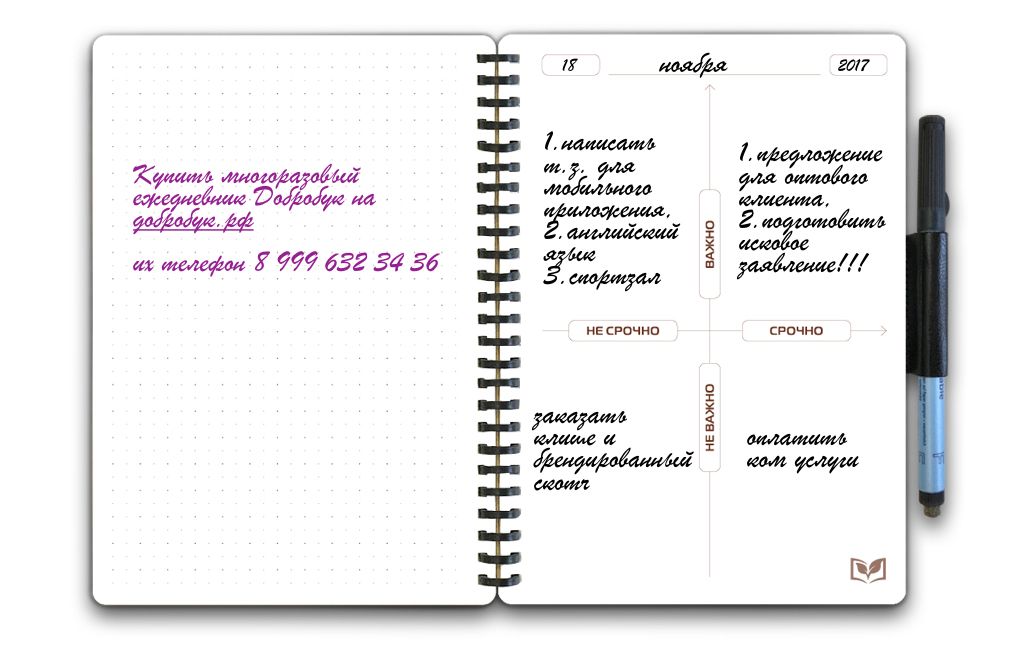 Купить многоразовый
ежедневник Добробук на
добробук.рф
их телефон 8 999 632 34 36
18
ноября
2017
1. написать
т.з. для
мобильного
приложения,
2. английский
язык
3. спортзал
1. предложение
для оптового
клиента,
2. подготовить
исковое
заявление!!!
ВАЖНО
НЕ СРОЧНО
СРОЧНО
НЕ ВАЖНО
заказать
клише и
брендированный
скотч
оплатить
ком услуги